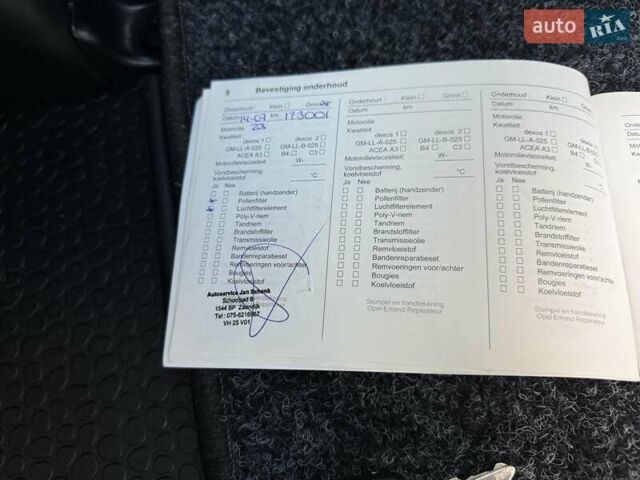 auto RIA .com
6 Bevestiging onderhoud
Onderhoud: Klein Groot
Datum 14-07 km 173001
Motorolie '23
Kwaliteit: dexos 1 dexos 2
GM-LL-A-025 GM-LL-B-025
ACEA A3 B4 C3
Motorolieviscositeit: W-
Vorstbescherming,
koelvloeistof °C
Ja Nee
Batterij (handzender)
Pollenfilter
Luchtfilterelement
Poly-V-riem
Tandriem
Brandstoffilter
Transmissieolie
Remvloeistof
Bandenreparatieset
Remvoeringen voor/achter
Bougies
Koelvloeistof
Autoservice Jan Schenk
Schoolpad 8
1544 BP Zaandijk
Tel: 075-6216967
VH 25 V01
Onderhoud: Klein Groot
Datum km
Motorolie
Kwaliteit: dexos 1 dexos 2
GM-LL-A-025 GM-LL-B-025
ACEA A3 B4 C3
Motorolieviscositeit: W-
Vorstbescherming,
koelvloeistof °C
Ja Nee
Batterij (handzender)
Pollenfilter
Luchtfilterelement
Poly-V-riem
Tandriem
Brandstoffilter
Transmissieolie
Remvloeistof
Bandenreparatieset
Remvoeringen voor/achter
Bougies
Koelvloeistof
Stempel en handtekening
Opel Erkend Reparateur
Onderhoud: Klein Groot
Datum km
Motorolie
Kwaliteit: dexos 1 dexos 2
GM-LL-A-025 GM-LL-B-025
ACEA A3 B4 C3
Motorolieviscositeit: W-
Vorstbescherming,
koelvloeistof °C
Ja Nee
Batterij (handzender)
Pollenfilter
Luchtfilterelement
Poly-V-riem
Tandriem
Brandstoffilter
Transmissieolie
Remvloeistof
Bandenreparatieset
Remvoeringen voor/achter
Bougies
Koelvloeistof
Stempel en handtekening
Opel Erkend Reparateur